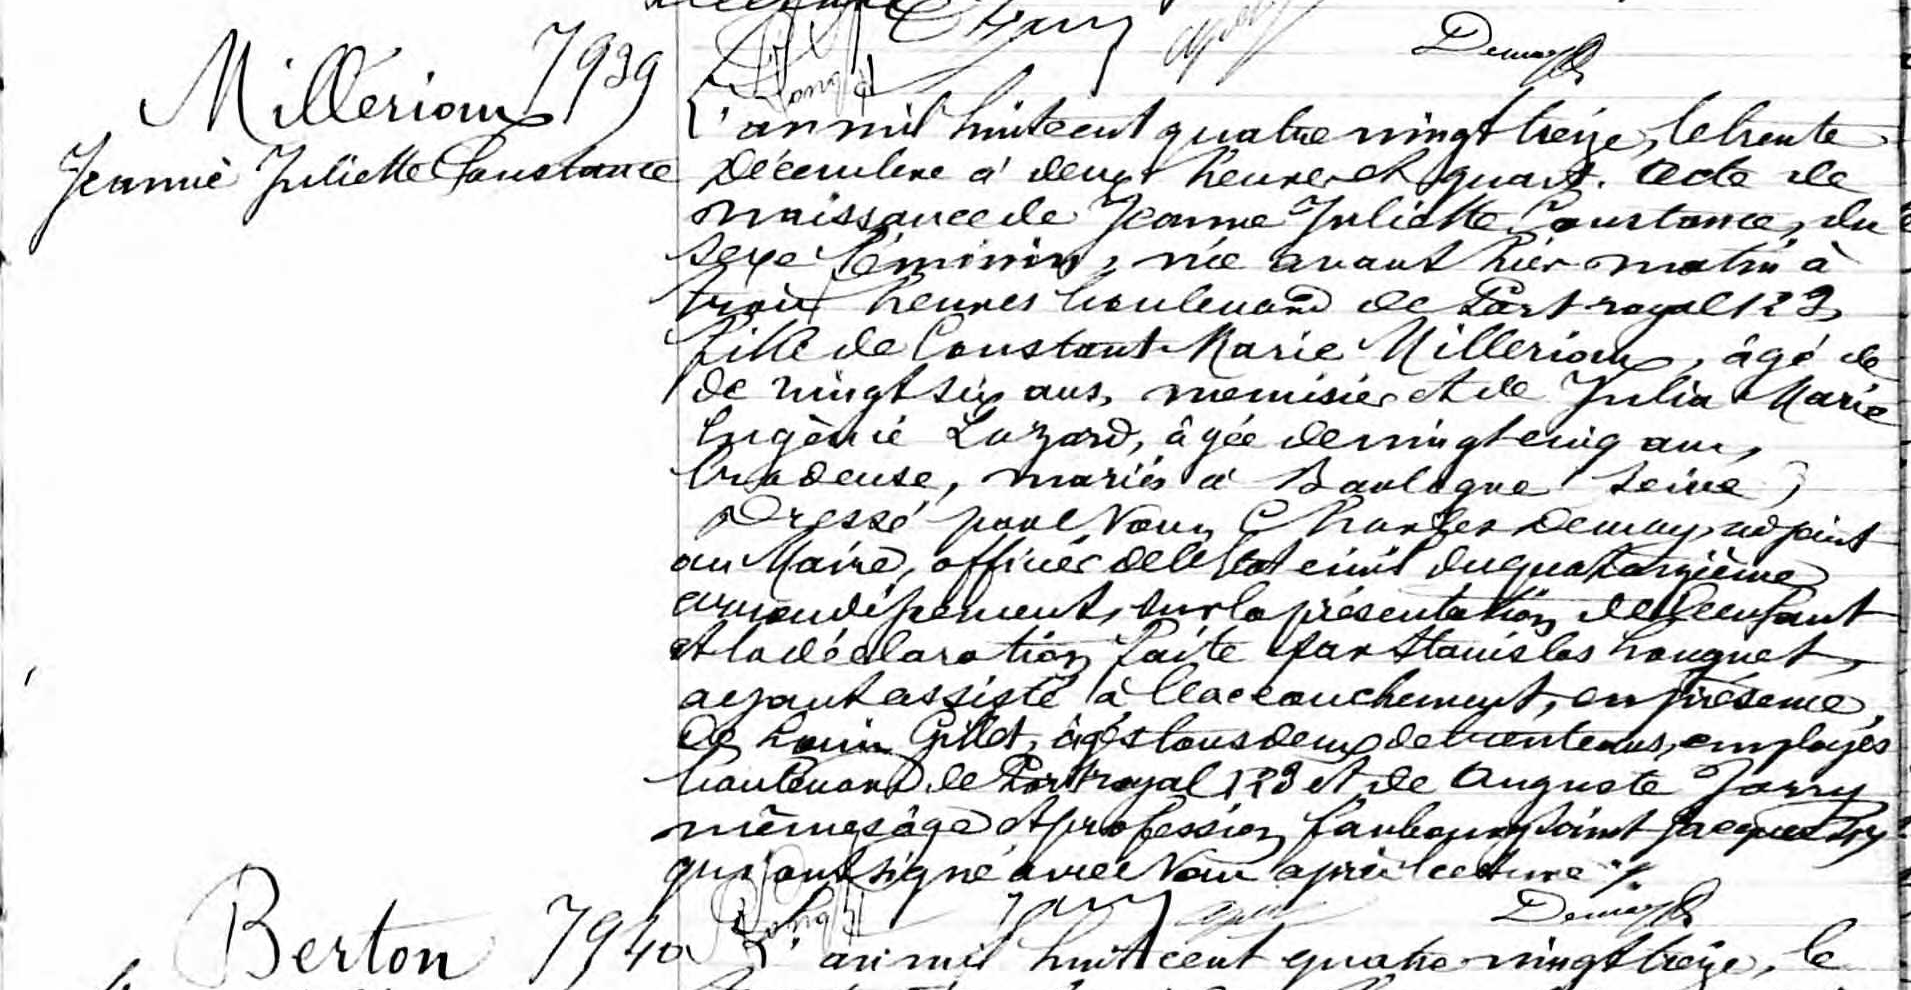 Jarry
Demay
Millerioux 7939
Jeanne Juliette Constance
L'an mil huit cent quatre vingt treize, le trente
Décembre à deux heures et quart. Acte de
naissance de Jeanne Juliette Constance, du
sexe féminin, née avant hier matin à
trois heures boulevard de Port royal 123,
fille de Constant Marie Millerioux, âgé de
de vingt six ans, menuisier et de Julia Marie
Eugènie Luzard, âgée de vingt cinq ans,
brodeuse, mariés à Boulogne Seine,
Dressé par Nous Charles Demay, adjoint
au Maire, officier de l'Etat civil du quatorzième
arrondissement, sur la présentation de l'enfant
et la déclaration faite par Stanislas Longuet,
ayant assisté à l'accouchement, en présence
de Louis Gillet, âgés tous deux de trente ans, employés
boulevard de Port royal 123 et de Auguste Jarry
mêmes âge et profession, faubourg Saint Jacques
qui ont signé avec Nous après lecture
Longuet Jarry Demay
Berton 7940
L'an mil huit cent quatre vingt treize, le